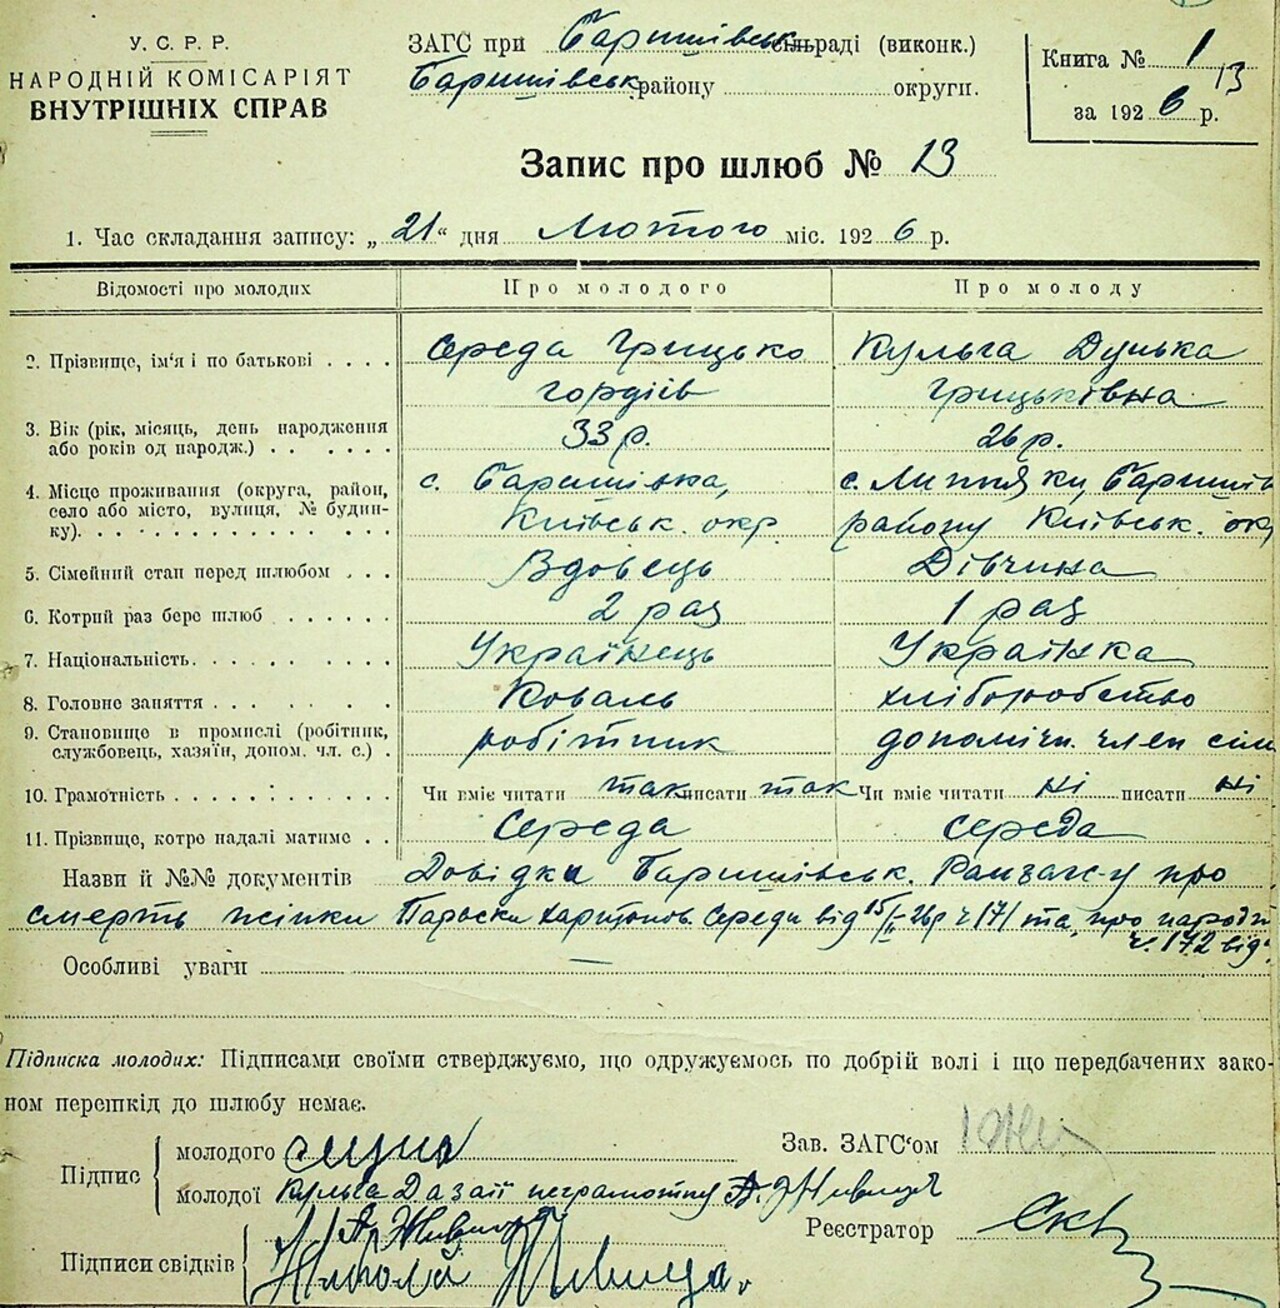 У. С. Р. Р.
НАРОДНІЙ КОМІСАРІЯТ
ВНУТРІШНІХ СПРАВ
ЗАГС при Баришівськ сільраді (виконк.)
Баришівськ району округи.
Книга № 1
13
за 1926 р.
Запис про шлюб № 13
1. Час складання запису: „21“ дня Лютого міс. 1926 р.
Відомості про молодих Про молодого Про молоду
2. Прізвище, ім'я і по батькові Середа Грицько Кульга Дунька
гордіїв Грицьківна
3. Вік (рік, місяць, день народження 33 р. 26 р.
або років од народж.)
4. Місце проживання (округа, район, с. Баришівка, с. Липняки, Баришів
село або місто, вулиця, № будин- Київськ. окр. району Київськ. окр
ку).
5. Сімейний стан перед шлюбом Вдовець Дівчина
6. Котрий раз бере шлюб 2 раз 1 раз
7. Національність Українець Українка
8. Головне заняття Коваль хліборобство
9. Становище в промислі (робітник, робітник допоміжн. член сім
службовець, хазяїн, допом. чл. с.)
10. Грамотність Чи вміє читати так писати так Чи вміє читати ні писати ні
11. Прізвище, котре надалі матиме Середа Середа
Назви й №№ документів Довідки Баришівськ. Райзаг-у про
смерть жінки Параски Харитонов. Середи від 15/II-26р ч 171 та, про народж
ч. 172 від
Особливі уваги —
Підписка молодих: Підписами своїми стверджуємо, що одружуємось по добрій волі і що передбачених зако-
ном перешкід до шлюбу немає.
Підпис
молодого
молодої Кульга неграмотну А. Живиця
Зав. ЗАГС'ом
Реєстратор
Підписи свідків